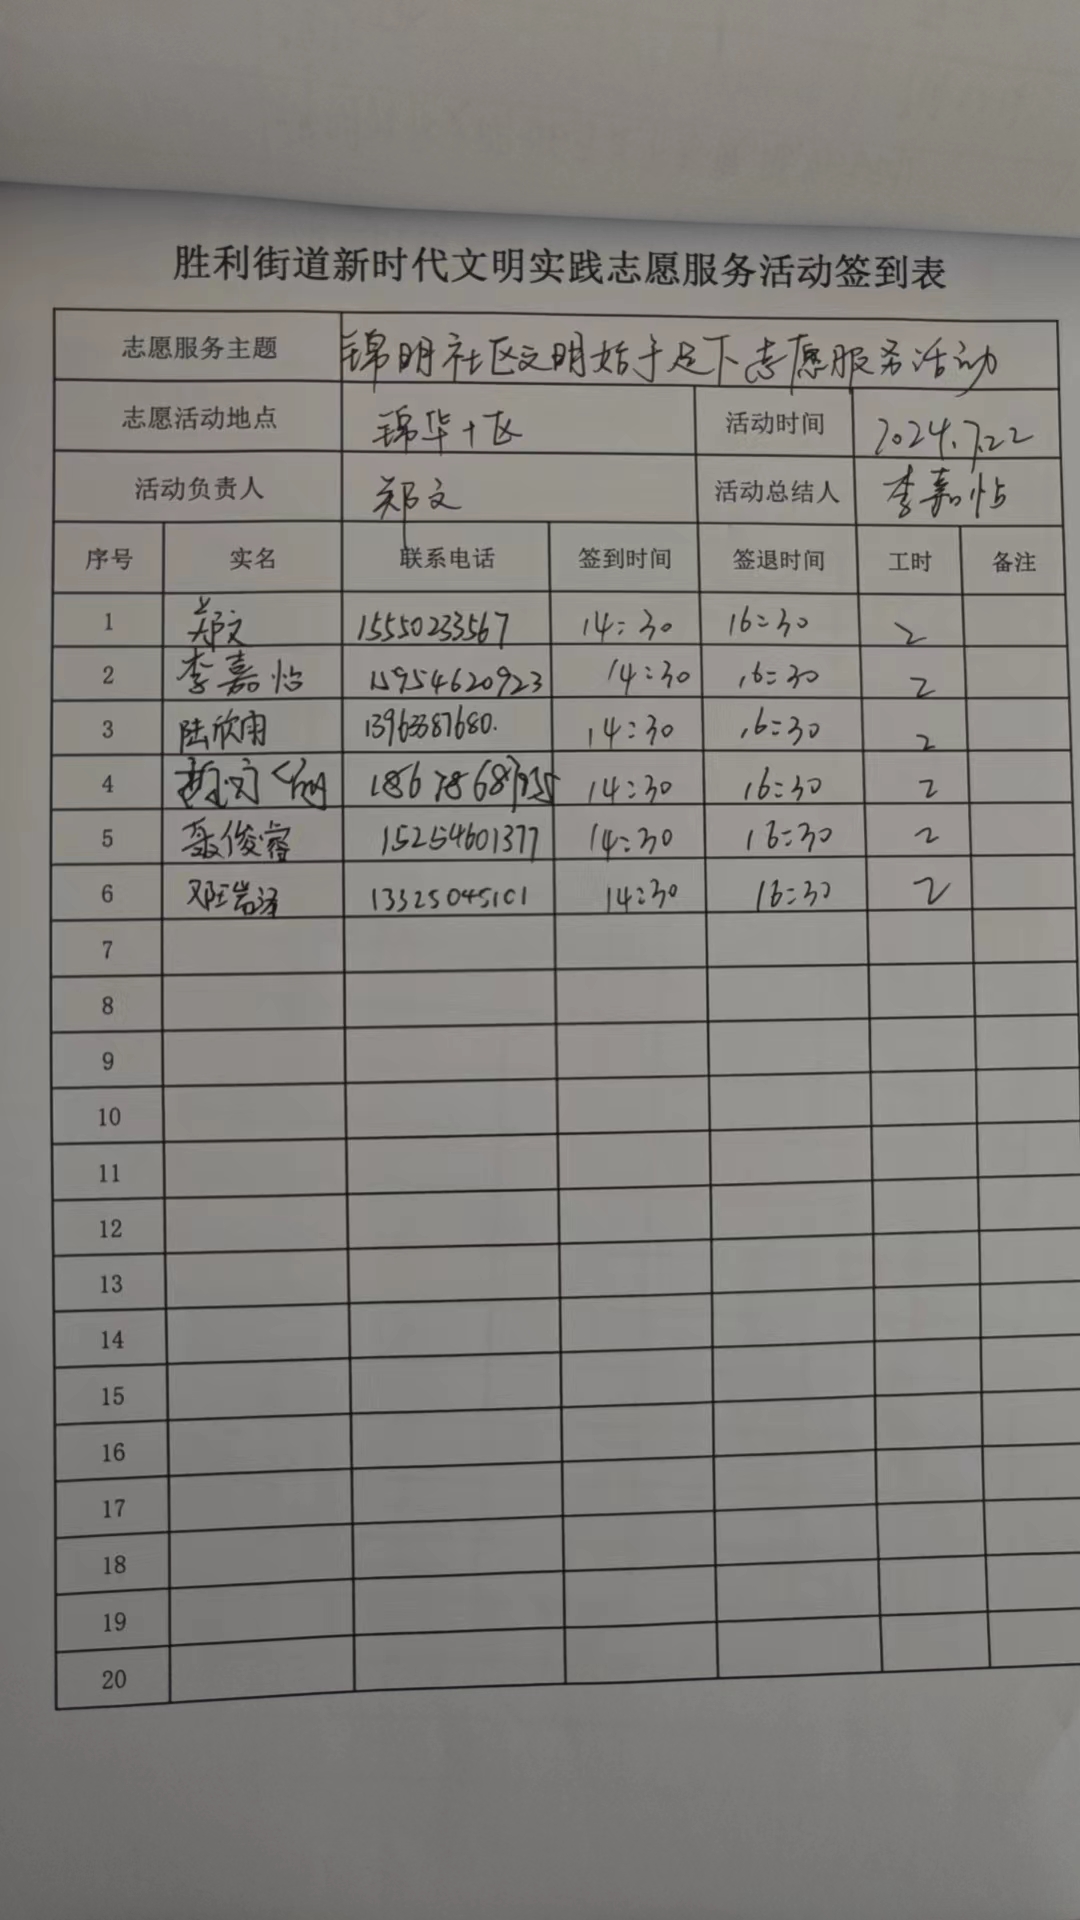 胜利街道新时代文明实践志愿服务活动签到表
志愿服务主题 锦明社区文明始于足下志愿服务活动
志愿活动地点 锦华十区 活动时间 2024.7.22
活动负责人 郑文 活动总结人 李嘉怡
序号 实名 联系电话 签到时间 签退时间 工时 备注
1 郑文 15550233567 14:30 16:30 2
2 李嘉怡 15954620923 14:30 16:30 2
3 陆欣雨 13963387680. 14:30 16:30 2
4 14:30 16:30 2
5 聂俊睿 15254601377 14:30 16:30 2
6 邓瑞泽 13325045101 14:30 16:30 2
7
8
9
10
11
12
13
14
15
16
17
18
19
20